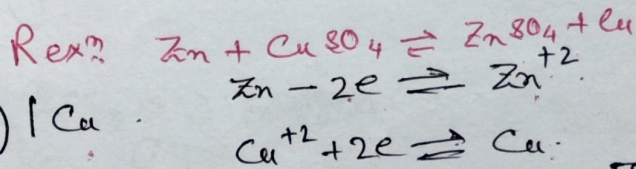 Rexn Zn + CuSO4 ⇌ ZnSO4 + Cu
Zn - 2e ⇌ Zn+2
) | Cu
Cu+2 + 2e ⇌ Cu.